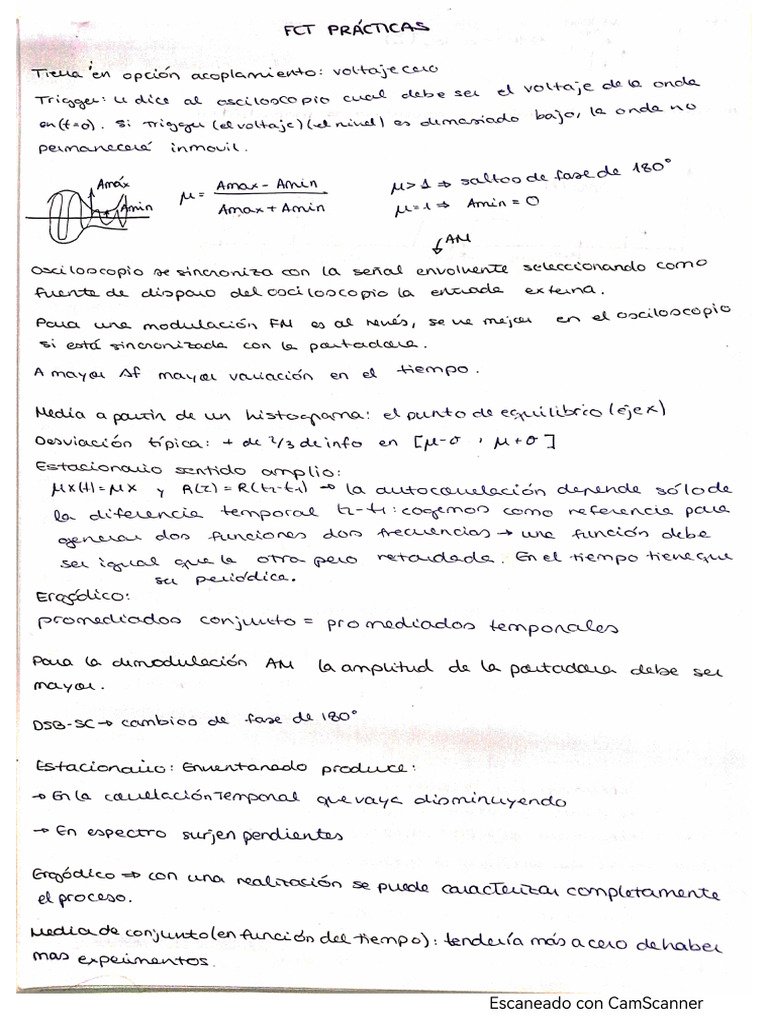 FCT PRÁCTICAS
Tierra en opción acoplamiento: voltaje cero
Trigger: le dice al osciloscopio cual debe ser el voltaje de la onda
en (t=0). Si Trigger (el voltaje) (el nivel) es demasiado bajo, la onda no
permanecerá inmovil.
Amáx
Amin
μ = (Amax - Amin) / (Amax + Amin)
μ > 1 ⇒ saltos de fase de 180°
μ = 1 ⇒ Amin = 0
AM
Osciloscopio se sincroniza con la señal envolvente seleccionando como
fuente de disparo del osciloscopio la entrada externa.
Para una modulación FM es al revés, se ve mejor en el osciloscopio
si está sincronizada con la portadora.
A mayor Δf mayor variación en el tiempo.
Media a partir de un histograma: el punto de equilibrio (eje x)
Desviación típica: + de 2/3 de info en [μ-σ, μ+σ]
Estacionario sentido amplio:
μx(t)=μx y R(τ)=R(t2-t1) → la autocorrelación depende sólo de
la diferencia temporal t2-t1: cogemos como referencia para
generar dos funciones dos frecuencias → una función debe
ser igual que la otra pero retardada. En el tiempo tiene que
ser periódica.
Ergódico:
promediados conjunto = promediados temporales
Para la demodulación AM la amplitud de la portadora debe ser
mayor.
DSB-SC → cambios de fase de 180°
Estacionario: Enventanado produce:
→ En la correlación Temporal que vaya disminuyendo
→ En espectro surjen pendientes
Ergódico ⇒ con una realización se puede caracterizar completamente
el proceso.
Media de conjunto (en función del tiempo): tendería más a cero de haber
mas experimentos.
Escaneado con CamScanner